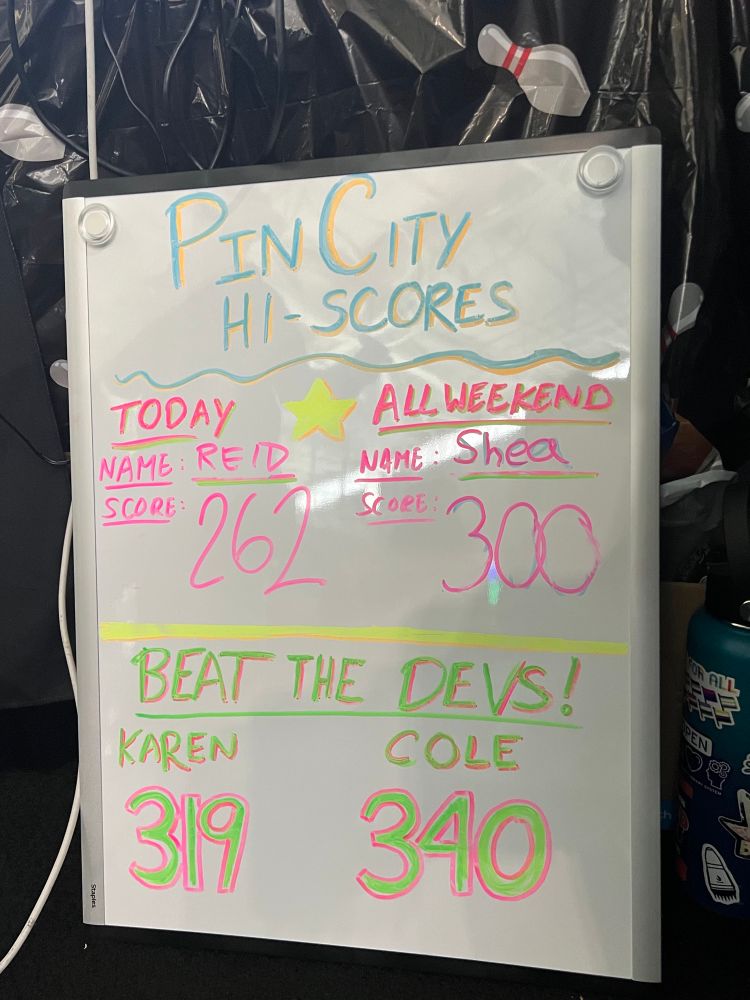 PIN CITY
HI-SCORES
TODAY
NAME: REID
SCORE: 262
ALL WEEKEND
NAME: Shea
SCORE: 300
BEAT THE DEVS!
KAREN
319
COLE
340
Staples
FOR ALL